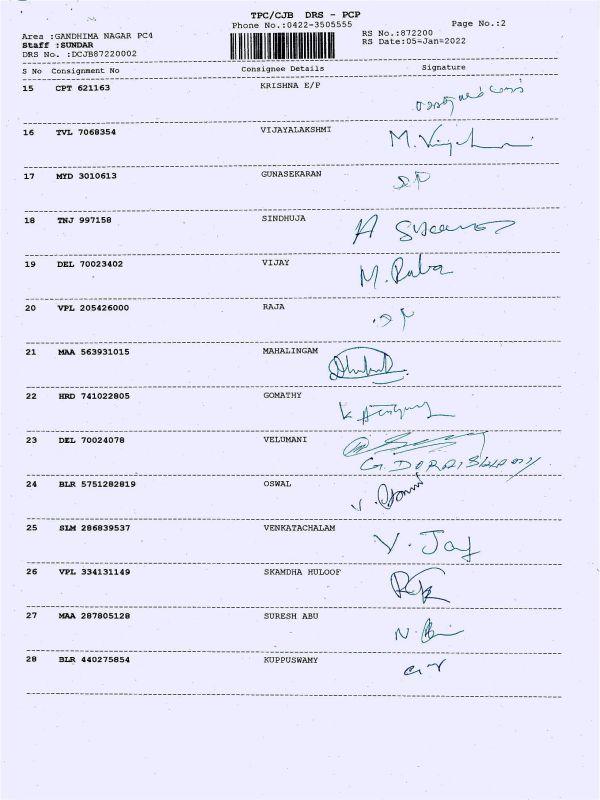 TPC/CJB DRS - PCP
Phone No.:0422-3505555 Page No.:2
Area :GANDHIMA NAGAR PC4 RS No.:872200
Staff :SUNDAR RS Date:05-Jan-2022
DRS No. :DCJB87220002
S No Consignment No Consignee Details Signature
15 CPT 621163 KRISHNA E/P
16 TVL 7068354 VIJAYALAKSHMI
17 MYD 3010613 GUNASEKARAN
18 TNJ 997158 SINDHUJA
19 DEL 70023402 VIJAY
20 VPL 205426000 RAJA
21 MAA 563931015 MAHALINGAM
22 HRD 741022805 GOMATHY
23 DEL 70024078 VELUMANI
24 BLR 5751282819 OSWAL
25 SLM 286839537 VENKATACHALAM
26 VPL 334131149 SKAMDHA HULOOF
27 MAA 287805128 SURESH ABU
28 BLR 440275854 KUPPUSWAMY